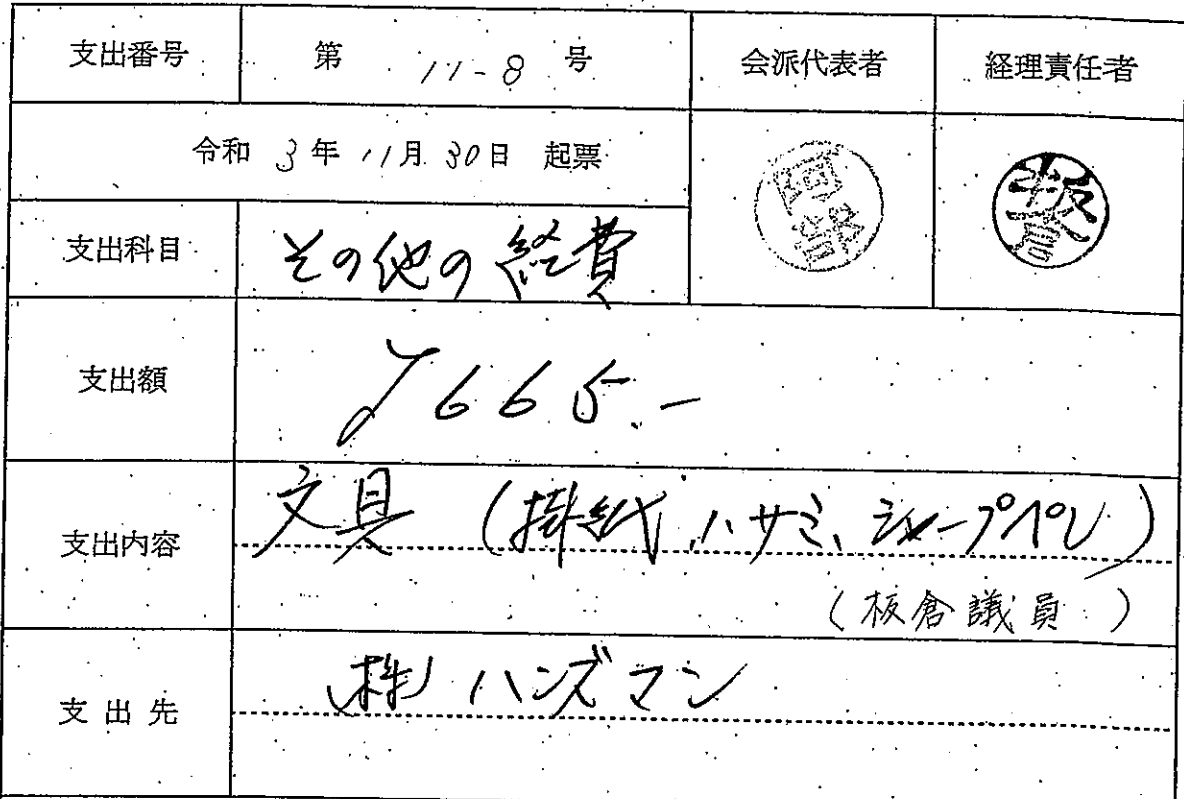 支出番号 第 11-8 号 会派代表者 経理責任者
令和 3年 11月 30日 起票
阿部
板倉
支出科目 その他の経費
支出額 ¥665.-
支出内容 文具 (掛紙、ハサミ、シャープペン)
(板倉議員)
支出先 (株) ハンズマン